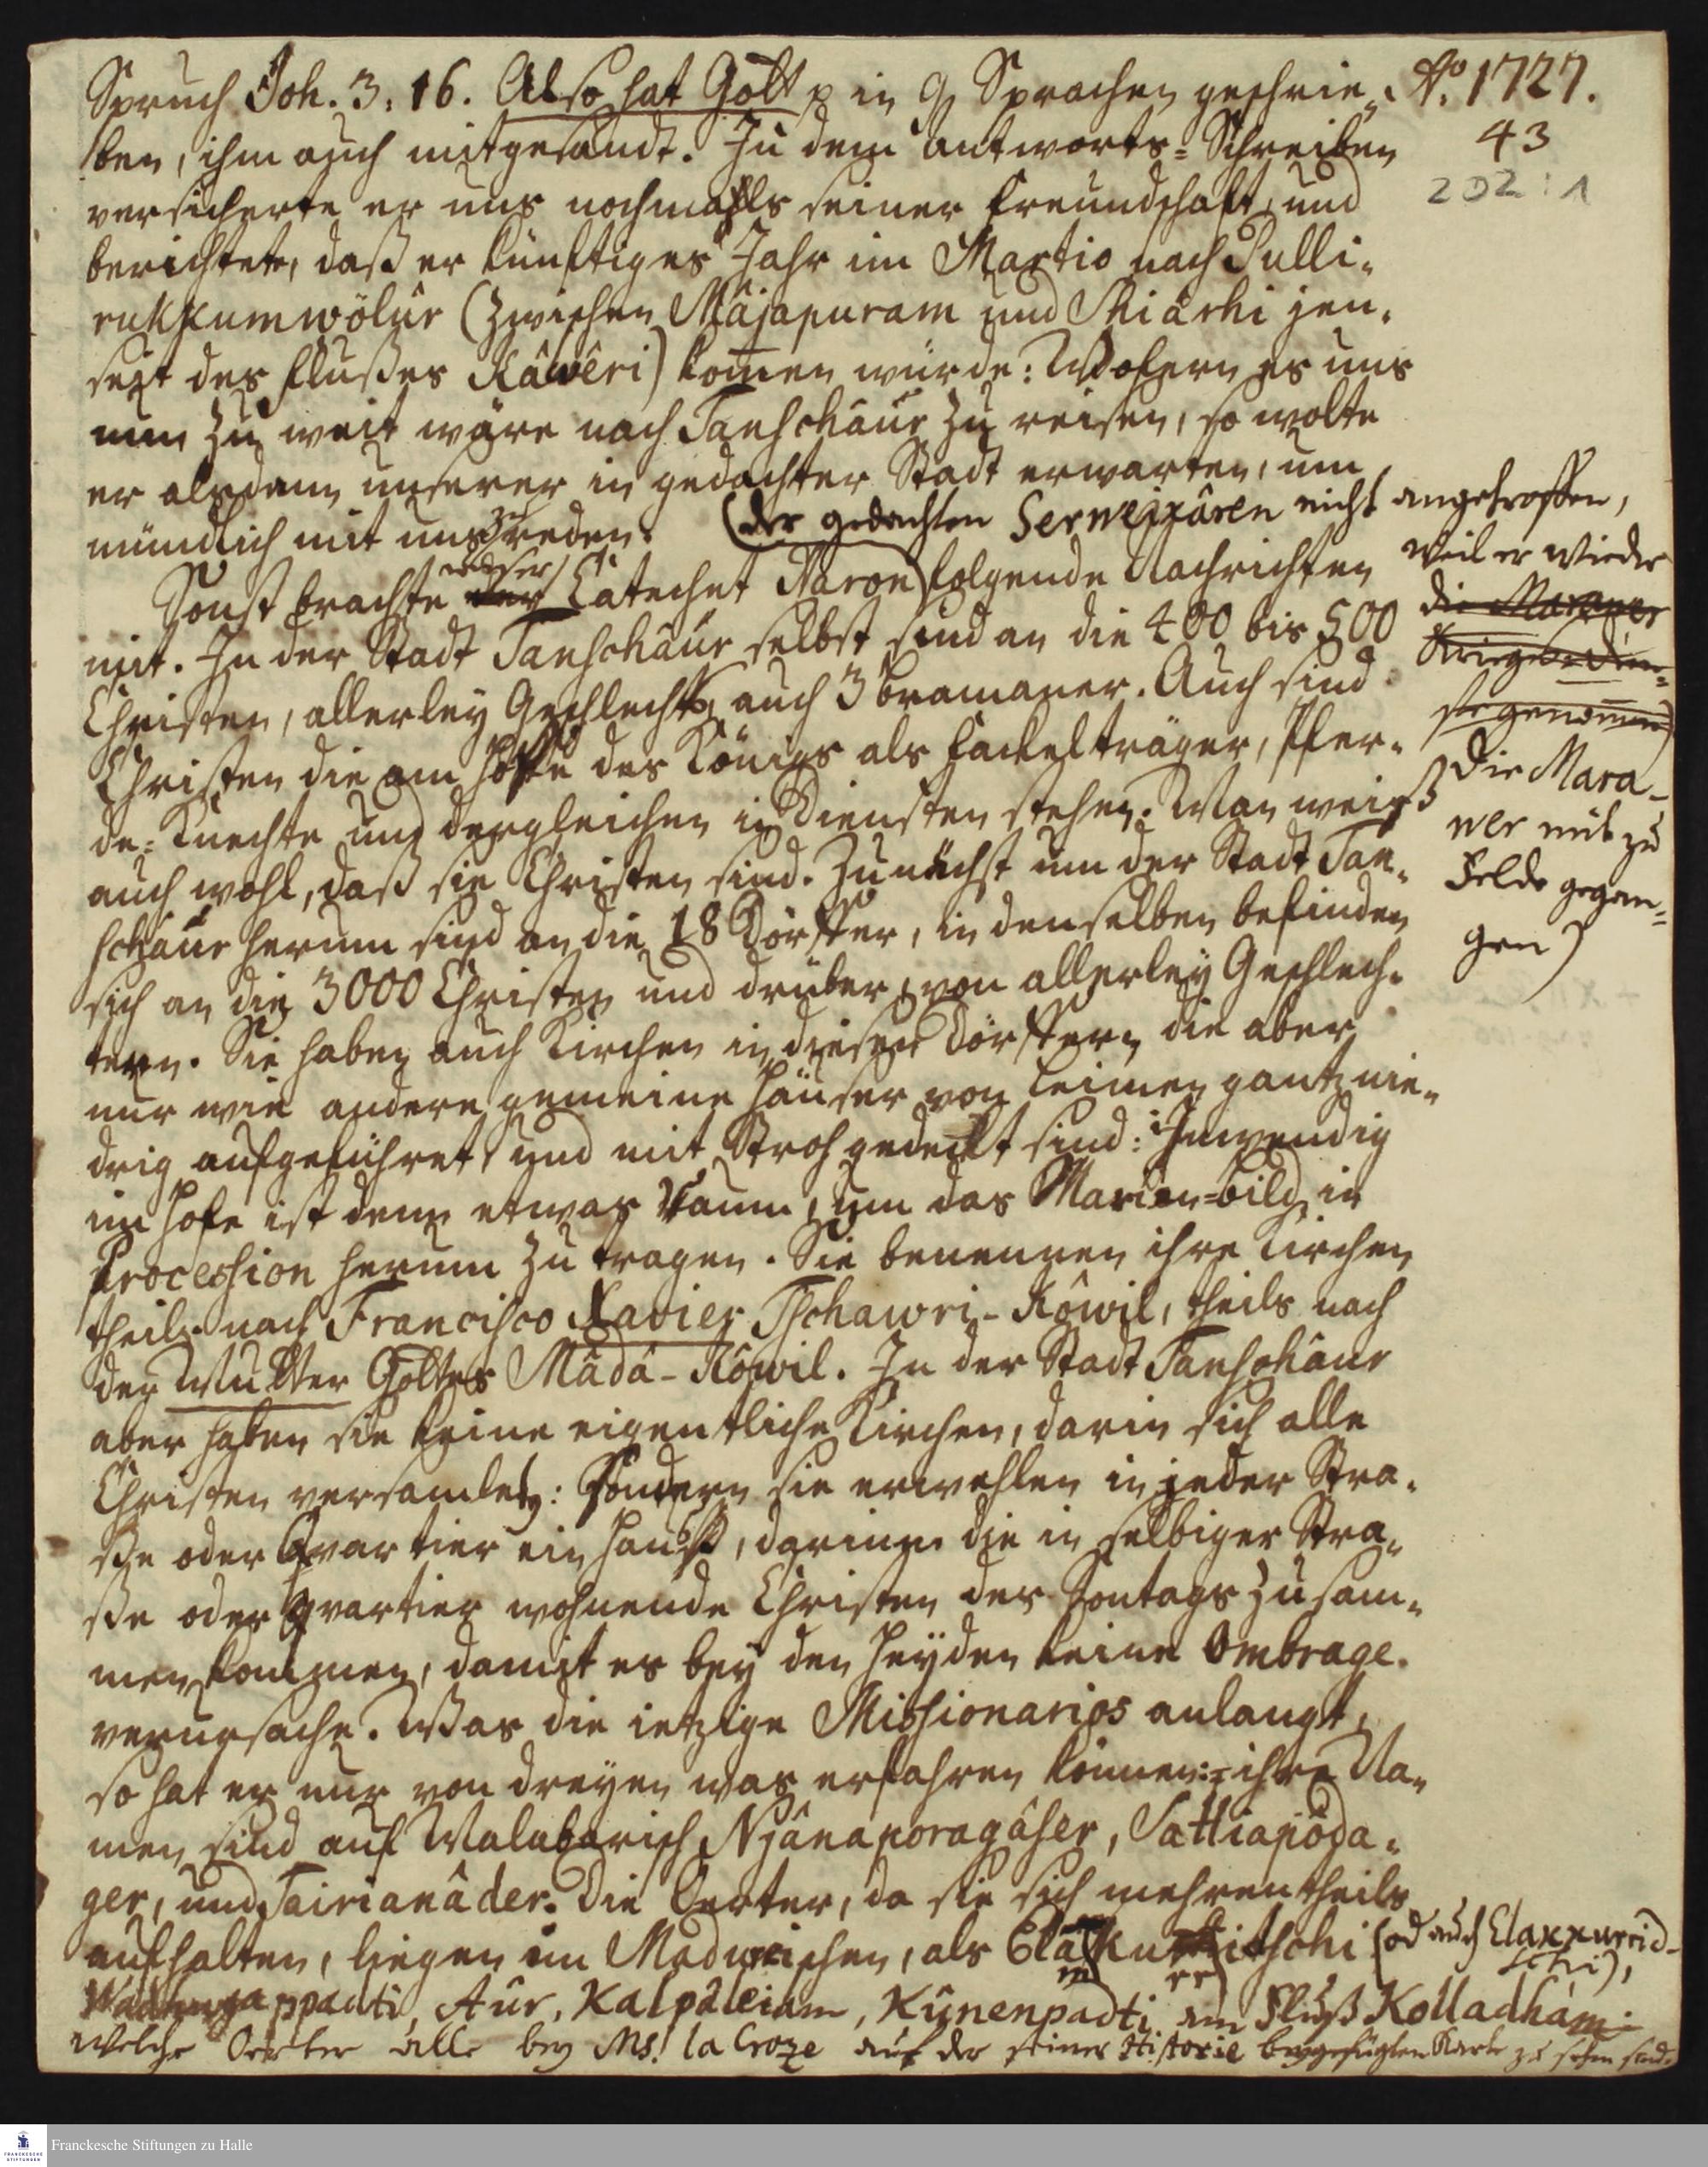 Spruch Joh. 3, 16. Also hat Gott p in 9 Sprachen geschrie-
ben, ihm auch mitgesandt. In dem Antworts-Schreiben
versicherte er uns nochmahls seiner Freundschaft, und
berichtete, daß er künftiges Jahr im Martio nach Pulli-
rukkumwölûr (zwischen Mâjapuram und Shiarhi jen-
seit des Flußes Kâwêri) kom̅en würde: Wofern es uns
nun zu weit wäre nach Tanschaur zu reisen, so wolte
er alsdenn unserer in gedachter Stadt erwarten, um
mündlich mit uns zu reden.
Sonst brachte unser Catechet Aaron (der gedachten Serweikâren nicht angetroffen,
weil er wieder
die Marawer
Kriegesdien-
ste genom̅en)
die Mara-
wer mit zu
Felde gegan-
gen)
folgende Nachrichten
mit. In der Stadt Tanschaur selbst sind an die 400 bis 500
Christen, allerley Geschlechts, auch 3 bramaner. Auch sind
Christen die am Hoffe des Königs als Fackelträger, Pfer-
de-Knechte und dergleichen in Diensten stehen. Man weiß
auch wohl, daß sie Christen sind. Zunächst um der Stadt Tan-
schaur herum sind an die 18 Dörffer, in denselben befinden
sich an die 3000 Christen und drüber, von allerley Geschlech-
tern. Sie haben auch Kirchen in diesen Dörffern, die aber
nur wie andere gemeine Häuser von Leimen gantz nie-
drig aufgeführet und mit Stroh gedeckt sind: Inwendig
im Hofe ist denn etwas Raum, um das Marien-bild in
Procession herum zu tragen. Sie benennen ihre Kirchen
theils nach Francisco Xavier Tschawri-Kôwil, theils nach
der Mutter Gottes Mâdâ-Kôwil. In der Stadt Tanschaur
aber haben sie keine eigentliche Kirchen, darin sich alle
Christen versamleten: Sondern sie erwehlen in jeder Stra-
ße oder Qvartier ein Hauß, darinne die in selbiger Stra-
ße oder Qvartier wohnende Christen des Sontags zusam-
men kommen, damit es bey den Heyden keine Ombrage
verursache. Was die ietzige Missionarios anlangt,
so hat er nur von dreyen was erfahren können: ihre Na-
men sind auf Malabarisch Njânaporagâser, Sattiapôda-
ger, und Tairianâder. Die Oerter, da sie sich mehrentheils
aufhalten, liegen im Madureischen, als Elâkurritschi (od auch Elaxxurrid-
schi),
Wadhugappadti, Aûr, Kalpâleiam, Kûnenpadti am Fluß Kolladham:
welche Oerter alle bey Ms! la Croze auf der seiner Historie beygefügten Karte zu sehen sind.
Ao. 1727.
43
202:1
Franckesche Stiftungen zu Halle
FRANCKESCHE
STIFTUNGEN